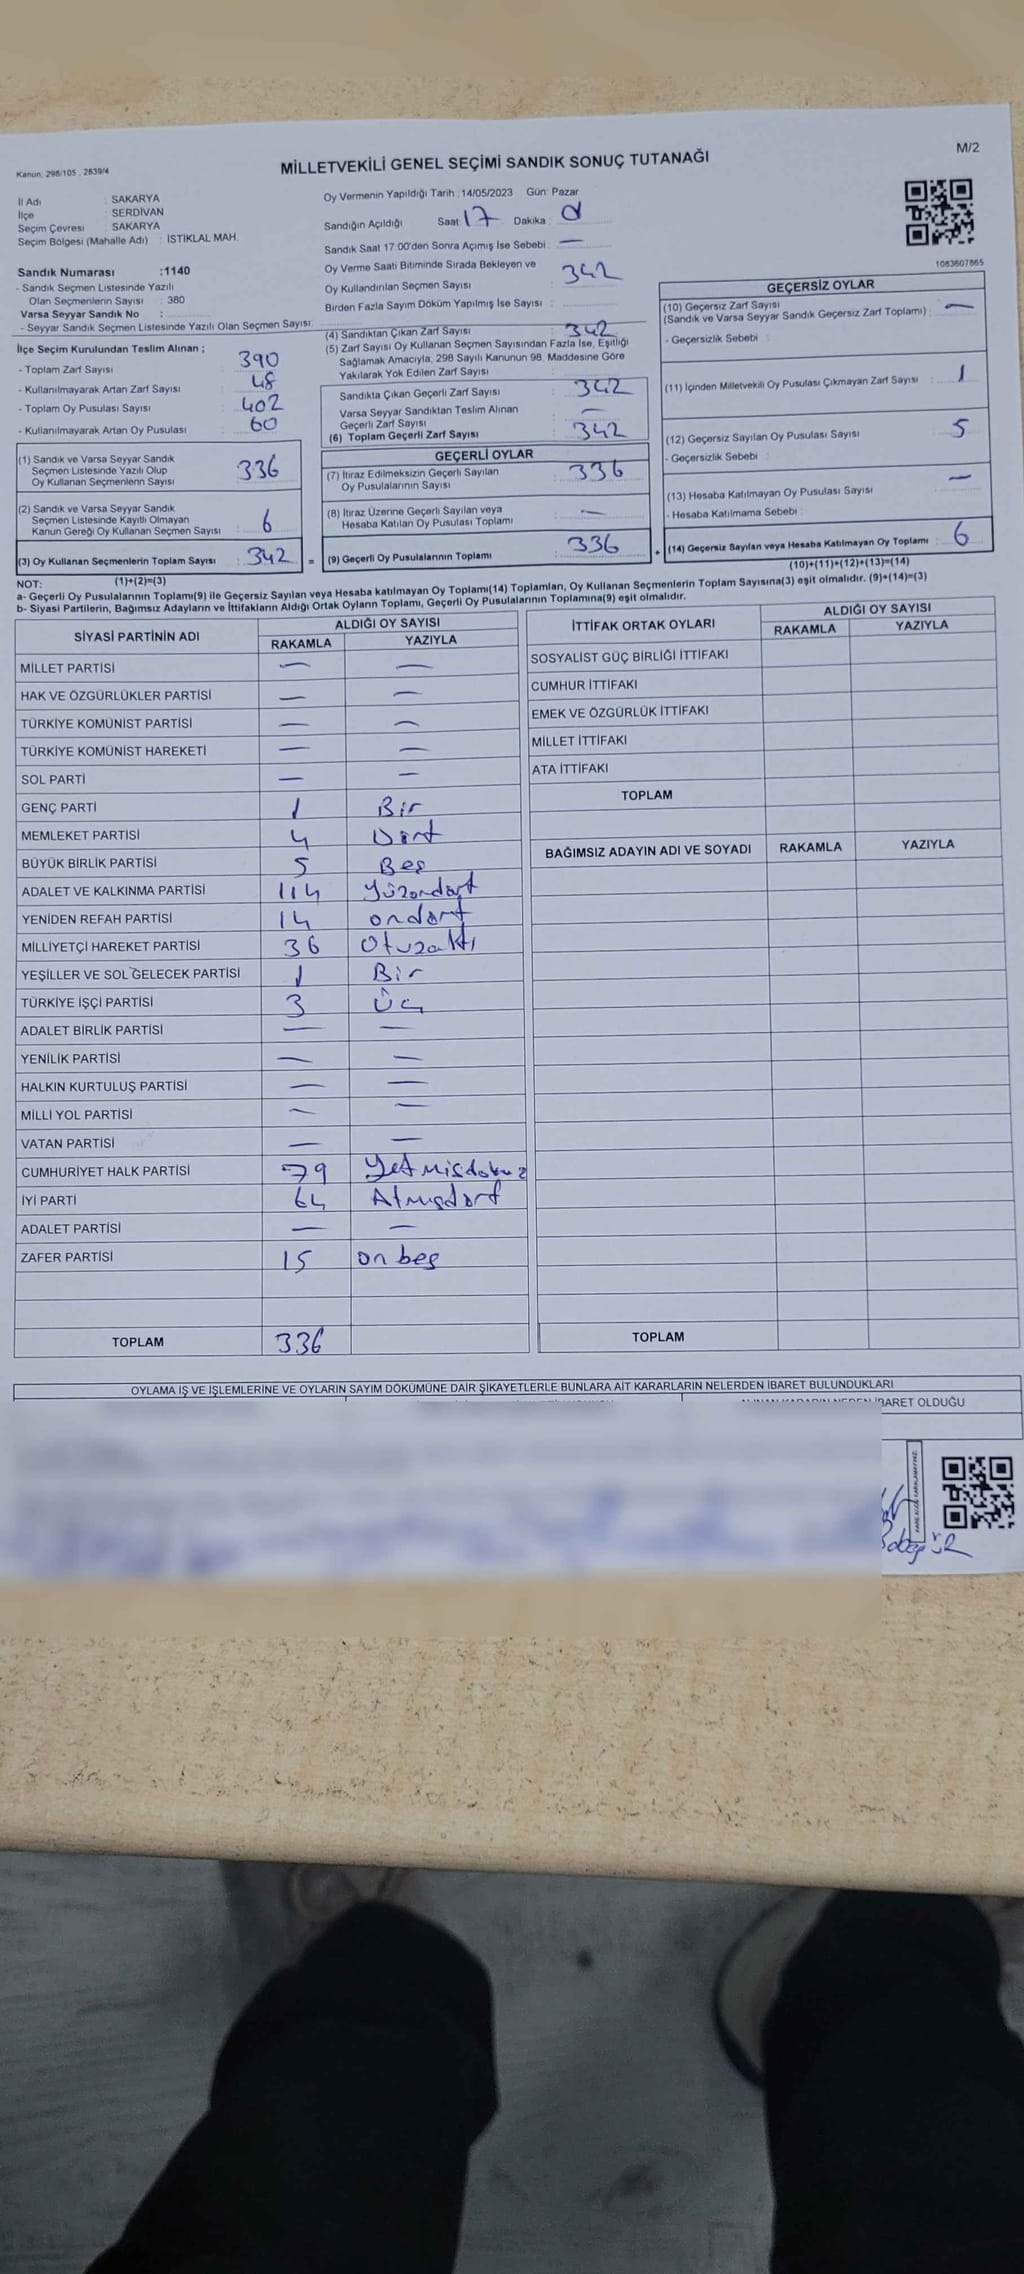 Kanun; 298/105 . 2839/4
MİLLETVEKİLİ GENEL SEÇİMİ SANDIK SONUÇ TUTANAĞI
M/2
İl Adı : SAKARYA
İlçe : SERDİVAN
Seçim Çevresi : SAKARYA
Seçim Bölgesi (Mahalle Adı) : İSTİKLAL MAH.
Sandık Numarası :1140
- Sandık Seçmen Listesinde Yazılı
Olan Seçmenlerin Sayısı : 380
Varsa Seyyar Sandık No :
- Seyyar Sandık Seçmen Listesinde Yazılı Olan Seçmen Sayısı
Oy Vermenin Yapıldığı Tarih : 14/05/2023 Gün Pazar
Sandığın Açıldığı Saat: 17 Dakika :
Sandık Saat 17:00'den Sonra Açımış İse Sebebi : —
Oy Verme Saati Bitiminde Sırada Bekleyen ve
Oy Kullandırılan Seçmen Sayısı : 342
Birden Fazla Sayım Döküm Yapılmış İse Sayısı :
1083607865
İlçe Seçim Kurulundan Teslim Alınan ;
- Toplam Zarf Sayısı : 390
- Kullanılmayarak Artan Zarf Sayısı : 48
- Toplam Oy Pusulası Sayısı : 402
- Kullanılmayarak Artan Oy Pusulası : 60
(1) Sandık ve Varsa Seyyar Sandık
Seçmen Listesinde Yazılı Olup
Oy Kullanan Seçmenlerin Sayısı 336
(2) Sandık ve Varsa Seyyar Sandık
Seçmen Listesinde Kayıtlı Olmayan
Kanun Gereği Oy Kullanan Seçmen Sayısı : 6
(3) Oy Kullanan Seçmenlerin Toplam Sayısı : 342 =
(4) Sandıktan Çıkan Zarf Sayısı : 342
(5) Zarf Sayısı Oy Kullanan Seçmen Sayısından Fazla İse, Eşitliği
Sağlamak Amacıyla; 298 Sayılı Kanunun 98. Maddesine Göre
Yakılarak Yok Edilen Zarf Sayısı :
Sandıkta Çıkan Geçerli Zarf Sayısı : 342
Varsa Seyyar Sandıktan Teslim Alınan
Geçerli Zarf Sayısı : —
(6) Toplam Geçerli Zarf Sayısı : 342
GEÇERLİ OYLAR
(7) İtiraz Edilmeksizin Geçerli Sayılan
Oy Pusulalarının Sayısı : 336
(8) İtiraz Üzerine Geçerli Sayılan veya
Hesaba Katılan Oy Pusulası Toplamı : —
(9) Geçerli Oy Pusulalarının Toplamı : 336 +
GEÇERSİZ OYLAR
(10) Geçersiz Zarf Sayısı
(Sandık ve Varsa Seyyar Sandık Geçersiz Zarf Toplamı) : —
- Geçersizlik Sebebi :
(11) İçinden Milletvekili Oy Pusulası Çıkmayan Zarf Sayısı : 1
(12) Geçersiz Sayılan Oy Pusulası Sayısı : 5
- Geçersizlik Sebebi :
(13) Hesaba Katılmayan Oy Pusulası Sayısı : —
- Hesaba Katılmama Sebebi :
(14) Geçersiz Sayılan veya Hesaba Katılmayan Oy Toplamı : 6
(10)+(11)+(12)+(13)=(14)
NOT: (1)+(2)=(3)
a- Geçerli Oy Pusulalarının Toplamı(9) ile Geçersiz Sayılan veya Hesaba katılmayan Oy Toplamı(14) Toplamları, Oy Kullanan Seçmenlerin Toplam Sayısına(3) eşit olmalıdır. (9)+(14)=(3)
b- Siyasi Partilerin, Bağımsız Adayların ve İttifakların Aldığı Ortak Oyların Toplamı, Geçerli Oy Pusulalarının Toplamına(9) eşit olmalıdır.
SİYASİ PARTİNİN ADI ALDIĞI OY SAYISI
RAKAMLA YAZIYLA
MİLLET PARTİSİ — —
HAK VE ÖZGÜRLÜKLER PARTİSİ — —
TÜRKİYE KOMÜNİST PARTİSİ — —
TÜRKİYE KOMÜNİST HAREKETİ — —
SOL PARTİ — —
GENÇ PARTİ 1 Bir
MEMLEKET PARTİSİ 4 Dört
BÜYÜK BİRLİK PARTİSİ 5 Beş
ADALET VE KALKINMA PARTİSİ 114 Yüzondört
YENİDEN REFAH PARTİSİ 14 ondört
MİLLİYETÇİ HAREKET PARTİSİ 36 Otuzaltı
YEŞİLLER VE SOL GELECEK PARTİSİ 1 Bir
TÜRKİYE İŞÇİ PARTİSİ 3 Üç
ADALET BİRLİK PARTİSİ — —
YENİLİK PARTİSİ — —
HALKIN KURTULUŞ PARTİSİ — —
MİLLİ YOL PARTİSİ — —
VATAN PARTİSİ — —
CUMHURİYET HALK PARTİSİ 79 Yetmişdokuz
İYİ PARTİ 64 Atmışdört
ADALET PARTİSİ — —
ZAFER PARTİSİ 15 on beş
TOPLAM 336
İTTİFAK ORTAK OYLARI ALDIĞI OY SAYISI
RAKAMLA YAZIYLA
SOSYALİST GÜÇ BİRLİĞİ İTTİFAKI
CUMHUR İTTİFAKI
EMEK VE ÖZGÜRLÜK İTTİFAKI
MİLLET İTTİFAKI
ATA İTTİFAKI
TOPLAM
BAĞIMSIZ ADAYIN ADI VE SOYADI RAKAMLA YAZIYLA
TOPLAM
OYLAMA İŞ VE İŞLEMLERİNE VE OYLARIN SAYIM DÖKÜMÜNE DAİR ŞİKAYETLERLE BUNLARA AİT KARARLARIN NELERDEN İBARET BULUNDUKLARI
İBARET OLDUĞU